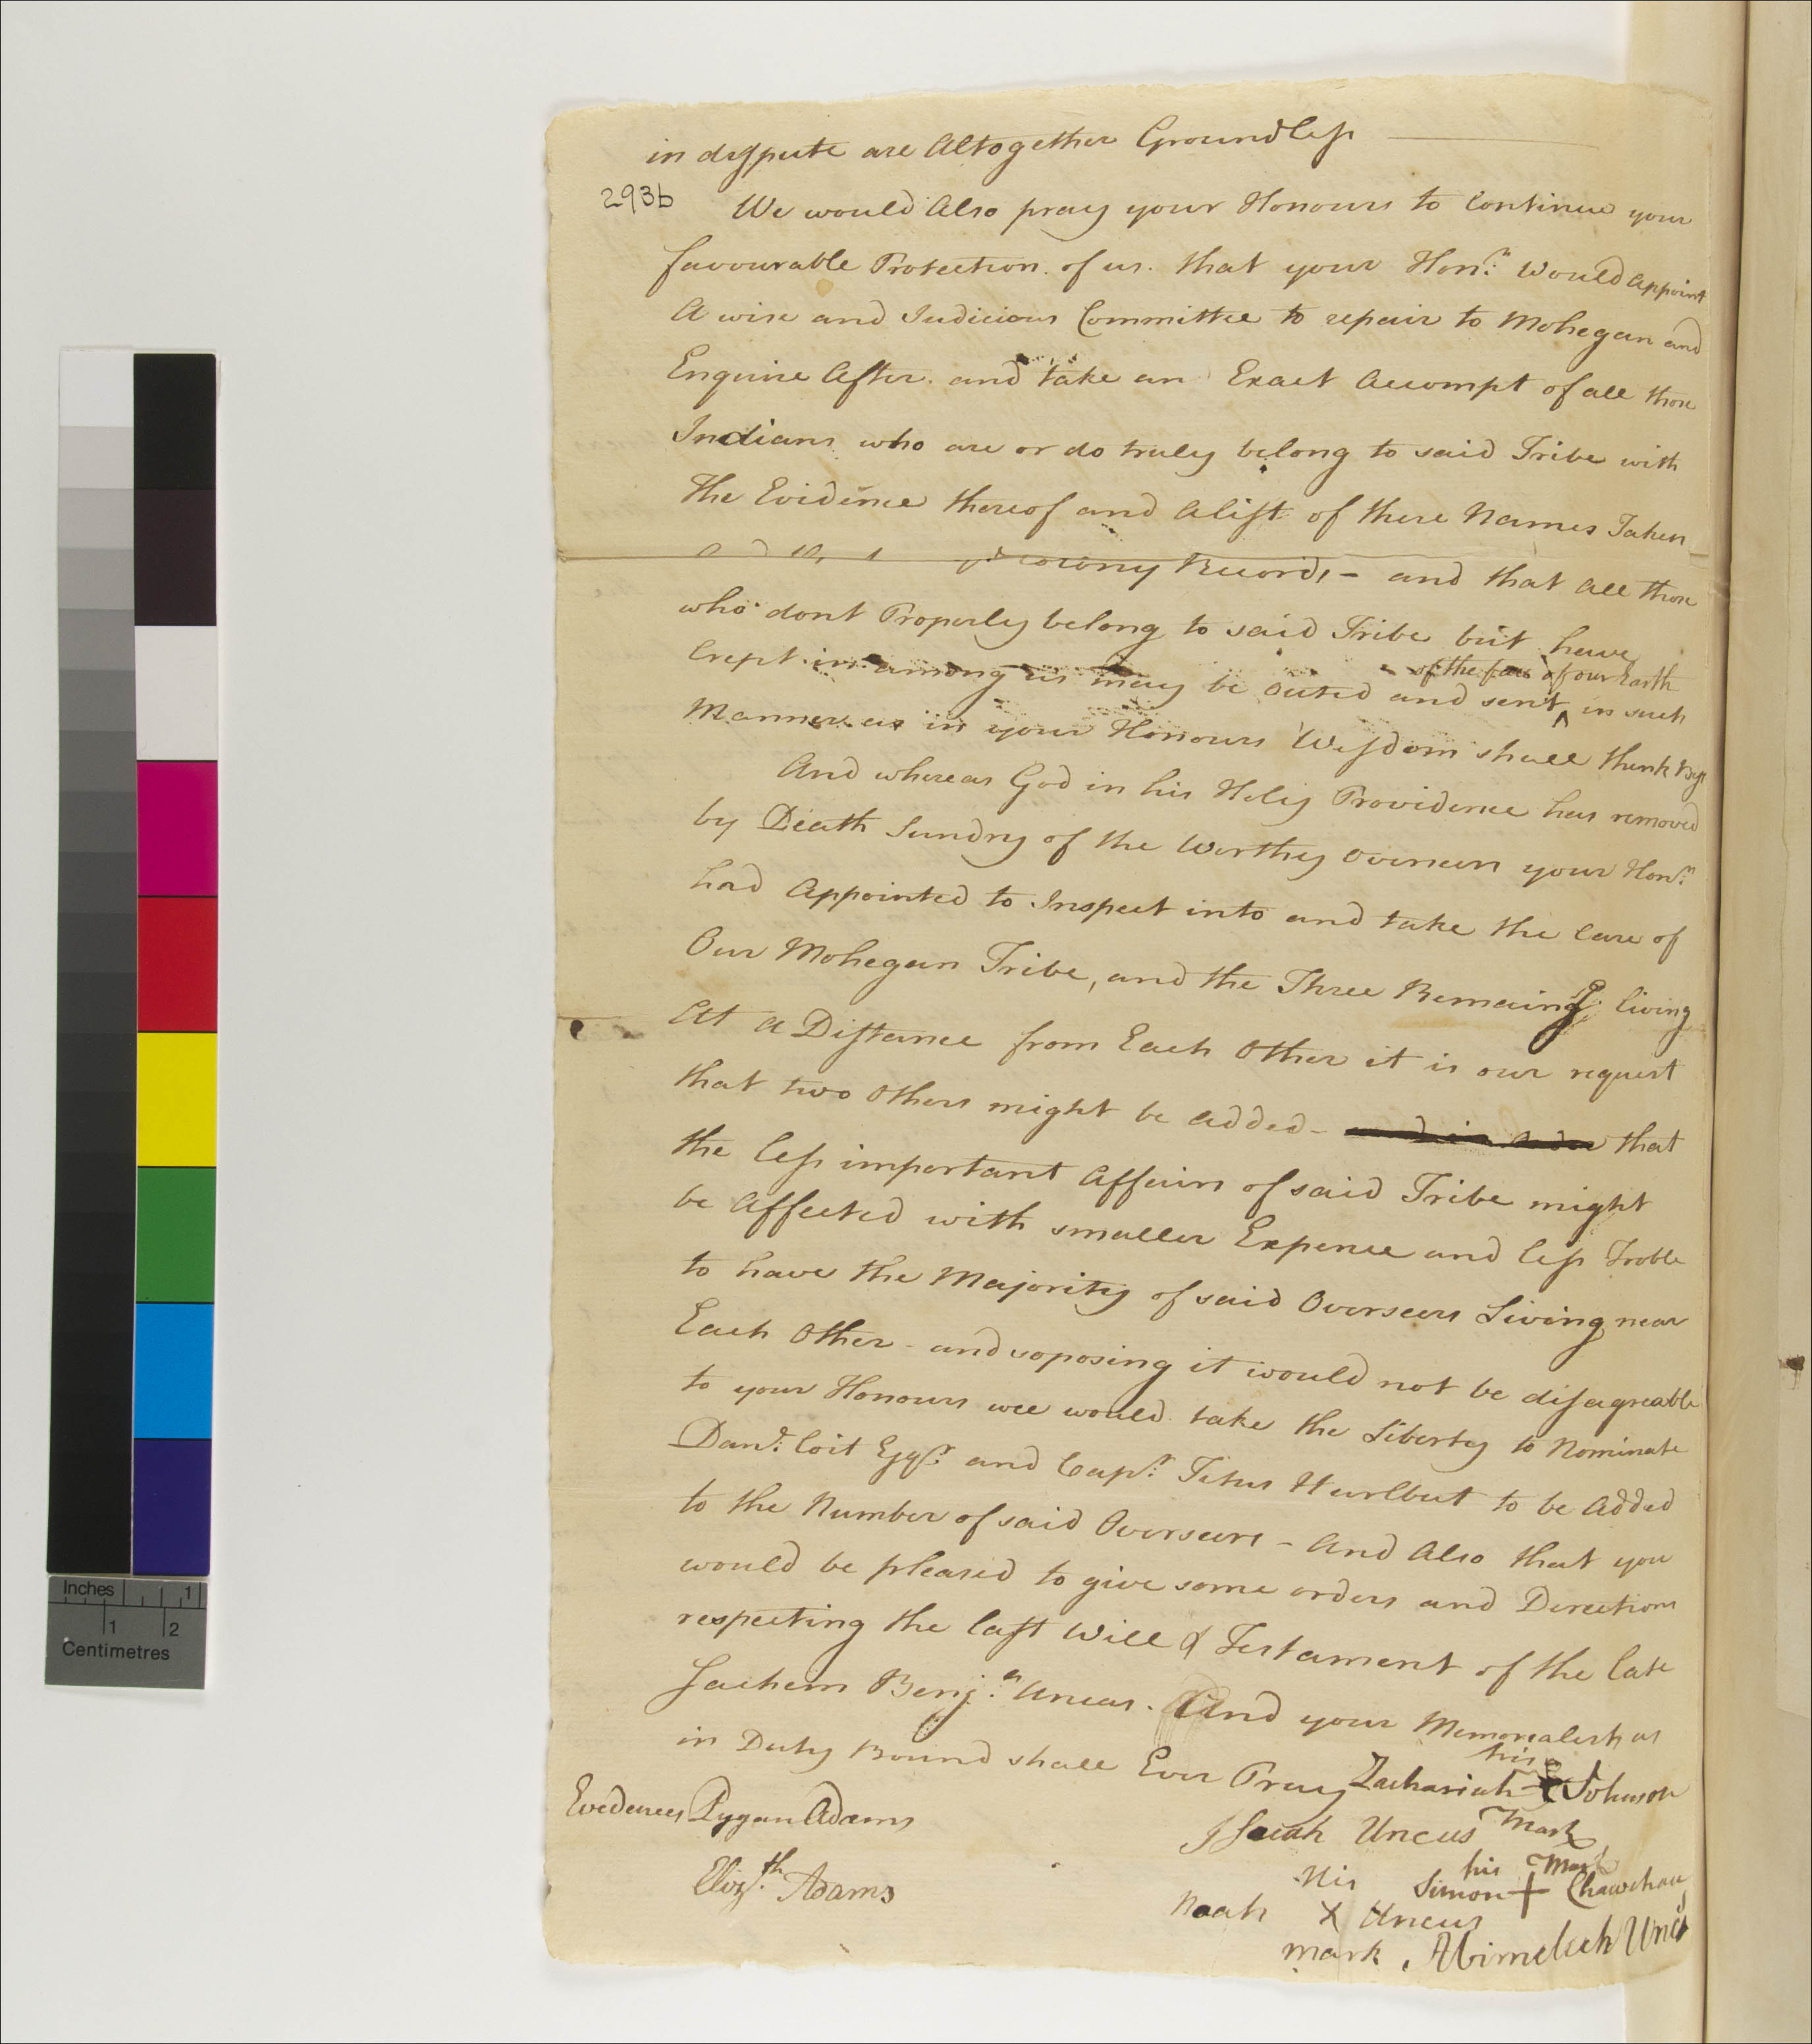 in dispute are Altogether Groundless
293b
We would Also pray your Honours to Continue your
favourable Protection of us. that your Honrs: would appoint
A wise and Judicious Committee to repair to Mohegan and
Enquire After. and take an Exact Accompt of all those
Indians who are or do truly belong to said Tribe with
the Evidence thereof and A list of there Names Taken
Colony Records - and that all those
who dont Properly belong to said Tribe but have
of the face of our Earth
Crept in among us may be outed and sent ^ in such
Manner as in your Honours Wisdom shall think best
And whereas God in his Holy Providence has removed
by Death Sundry of the Worthy Overseers your Honrs:
had Appointed to Inspect into and take the Care of
Our Mohegan Tribe, and the Three Remaing living
At a Distance from Each Other it is our request
that two others might be added - that
the less important Affairs of said Tribe might
be Affected with smaller Expence and less Troble
to have the Majority of said Overseers Living near
Each Other - and soposing it would not be disagreable
to your Honours wee would take the Liberty to Nominate
Danl: Coit Esqr: and Capt: Titus Hurlbut to be Added
to the Number of said Overseers - And Also that you
would be pleased to give some orders and Derections
respecting the last Will & Testament of the late
Sachem Benjn: Uncas. And your Memorialists as
in Duty Bound shall Ever Pray
his
Zachariah Johnson
mark
Evedences Pygan Adams
Isaiah Uncus
Elizth: Adams
his mark
Simon + Chawchau
His
Noah X Uncus
mark
Abimelech Uncs